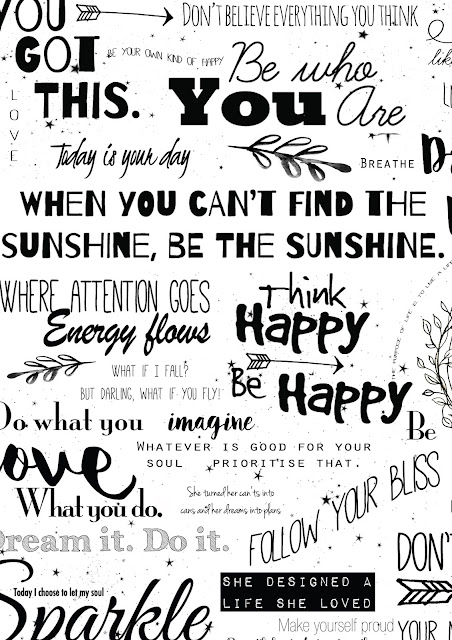 YOU
GOT
THIS.
DON'T BELIEVE EVERYTHING YOU THINK
BE YOUR OWN KIND OF HAPPY
Be who
You Are
LOVE
Today is your day
BREATHE
WHEN YOU CAN'T FIND THE
SUNSHINE, BE THE SUNSHINE.
WHERE ATTENTION GOES
Energy flows
Think
Happy
Be Happy
WHAT IF I FALL?
BUT DARLING, WHAT IF YOU FLY!
THE PURPOSE OF LIFE IS TO LIVE A LIFE
Do what you
love
What you do.
imagine
Be
WHATEVER IS GOOD FOR YOUR
SOUL PRIORITISE THAT.
She turned her can'ts into
cans and her dreams into plans
FOLLOW YOUR BLISS
Dream it. Do it.
DON'T
Today I choose to let my soul
Sparkle
SHE DESIGNED A
LIFE SHE LOVED
Make yourself proud
YOUR